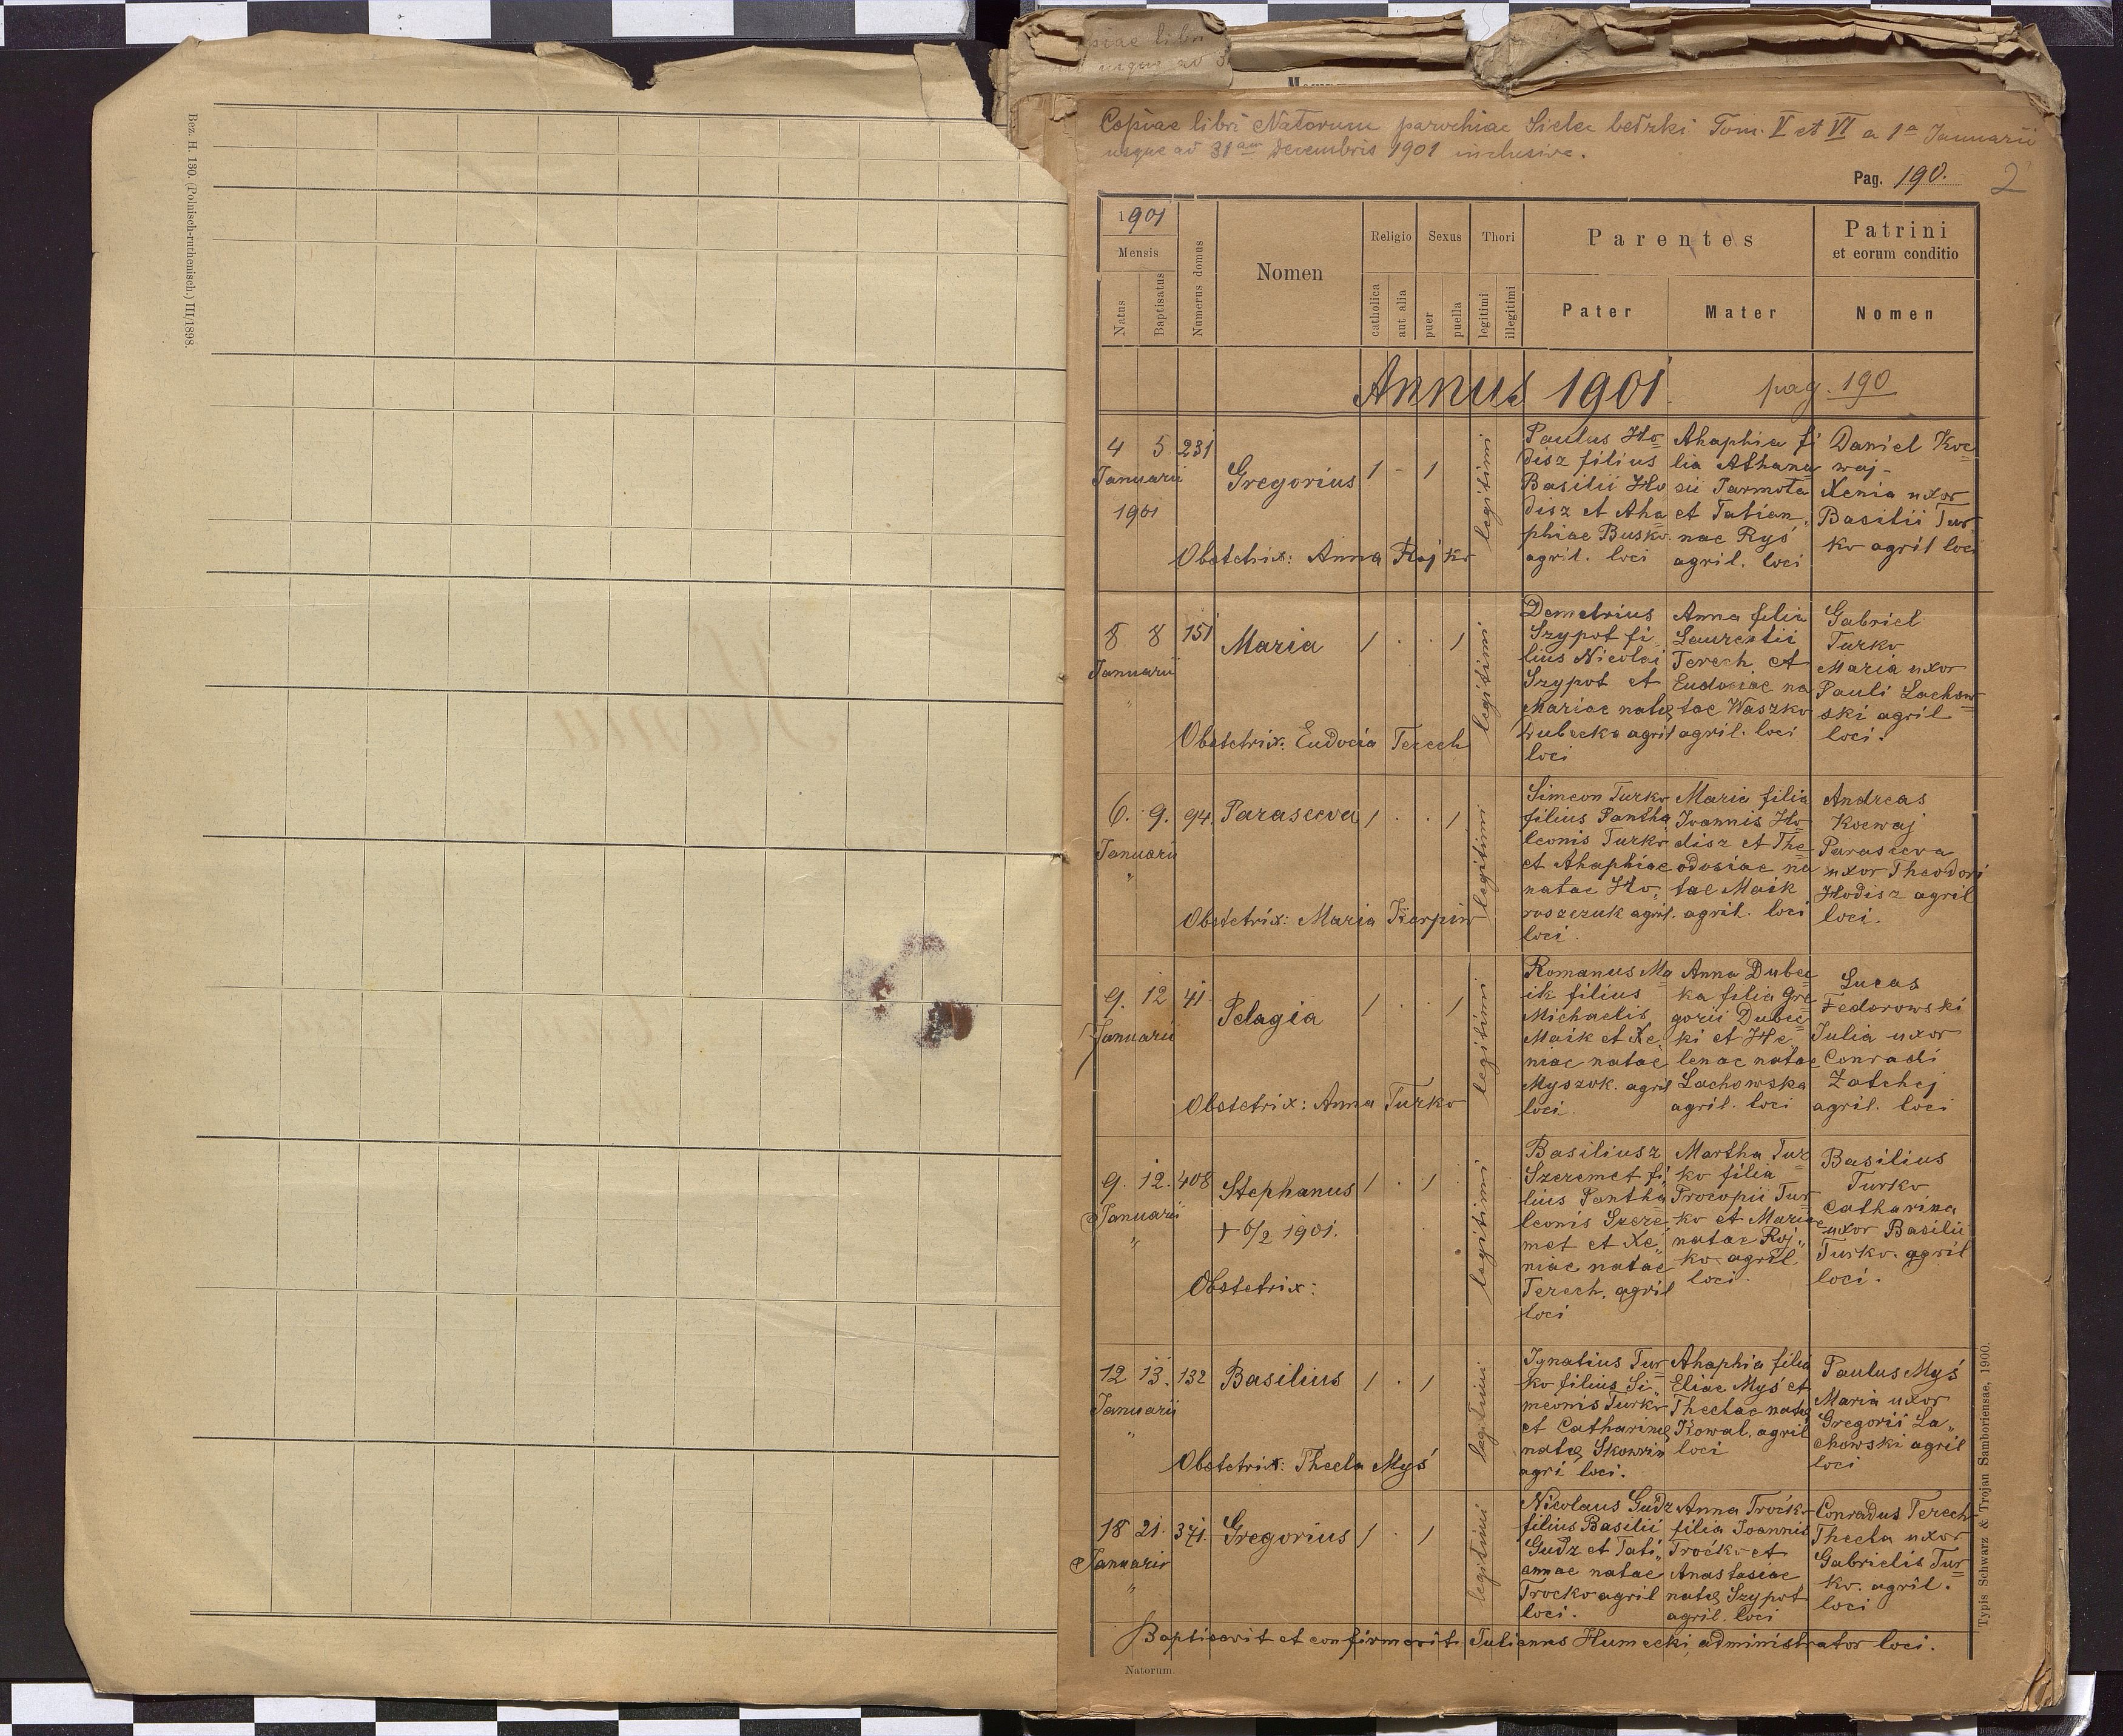 Bez. H. 130. (Polnisch-ruthenisch.) III/1898.
Copiae libri Natorum parochiae Tom. V et VI a 1a Januarii
usque ad 31am Decembris 1901 inclusive.
Pag. 190. 2
1901
Mensis
Natus
Baptisatus
Numerus domus
Nomen
Religio
catholica
aut alia
Sexus
puer
puella
Thori
legitimi
illegitimi
Parentes
Pater
Mater
Patrini
et eorum conditio
Nomen
Annus 1901. pag. 190
4 5 231
Januarii
1901
Gregorius
1 - 1
legitimi
Paulus Ho=
disz filius
Basilii Ho
disz et Aha=
phiae Busko.
agril. loci
Ahaphia fi
lia Athana
sii Jarmota
et Tatian,
nae Ryś
agril. loci
Daniel Koc=
waj -
Xenia uxor
Basilii Tur
ko agril loci
Obstetrix: Anna Rojko
8 8 151
Januarii
"
Maria
1 . . 1
legitimi
Demetrius
Szypot fi
lius Nicolai
Szypot et
Mariae natę
Dubecka agril
loci
Anna filia
Laurentii
Terech et
Eudociae na
tae Waszko
agril. loci
Gabriel
Turko
Maria uxor
Pauli Lachow=
ski agril
loci.
Obstetrix: Eudocia Terech
6. 9. 94.
Januarii
"
Parasceva
1 . . 1
legitimi
Simeon Turko
filius Pantha
leonis Turko
et Ahaphiae
natae Ho„
roszczuk agril.
loci.
Maria filia
Joannis Ho=
disz et The=
odosiae na
tae Maik
agril. loci
Andreas
Kocwaj
Parasceva
uxor Theodori
Hodisz agril
loci.
Obstetrix: Maria Karpin
9. 12 41
Januarii
Pelagia
1 . . 1
legitimi
Romanus Ma=
ik filius
Michaelis
Maik et Xe,
niae natae
Myszok. agril
loci.
Anna Dubec=
ka filia Gre
gorii Dubec=
ki et He,
lenae natae
Lachowska
agril. loci
Lucas
Fedorowski
Julia uxor
Conradi
Zatchej
agril. loci
Obstetrix: Anna Turko
9. 12. 408
Januarii
"
Stephanus
1 . 1
+ 6/2 1901.
legitimi
Basiliusz
Szeremet fi,
lius Pantha
leonis Szere,
met et Xe„
niae natae
Terech. agril
loci
Martha Tur=
ko filia
Procopii Tur
ko et Mariae
natae Roj„
ko agril.
loci.
Basilius
Turko
Catharina
uxor Basilii
Turko. agril
loci.
Obstetrix:
12 13. 132
Januarii
"
Basilius
1 . 1
legitimi
Ignatius Tur=
ko filius Si„
meonis Turko
et Catharinę
natę Skowrin
agri loci.
Ahaphia filia
Eliae Myś et
Theclae natę
Kowal. agril
loci
Paulus Myś
Maria uxor
Gregorii La„
chowski agril
loci
Obstetrix: Thecla Myś
18 21. 371.
Januarii
"
Gregorius
1 . 1
legitimi
Nicolaus Gudz
filius Basilii
Gudz et Tati„
annae natae
Trocko agril
loci.
Anna Troćko
filia Joannis
Troćko et
Anastasiae
natę Szypot
agril. loci
Conradus Terech
Thecla uxor
Gabrielis Tur=
ko. agril.
loci
Baptisavit et confirmavit: Julianus Humecki, administrator loci.
Natorum.
Typis Schwarz & Trojan Samboriensae, 1900.